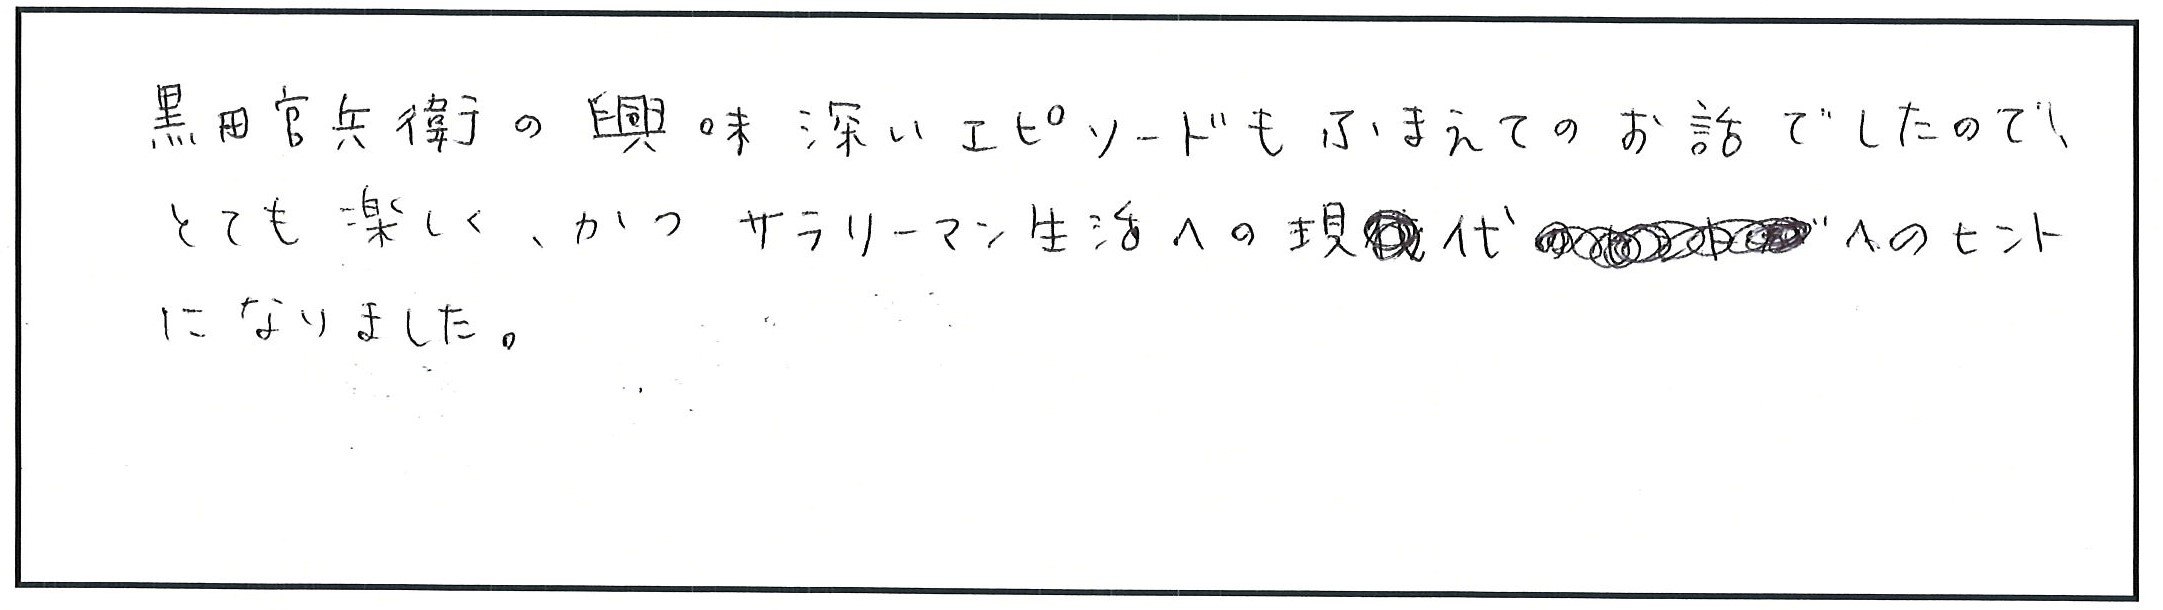 黒田官兵衛の興味深いエピソードもふまえてのお話でしたので、
とても楽しく、かつサラリーマン生活への現代へのヒント
になりました。